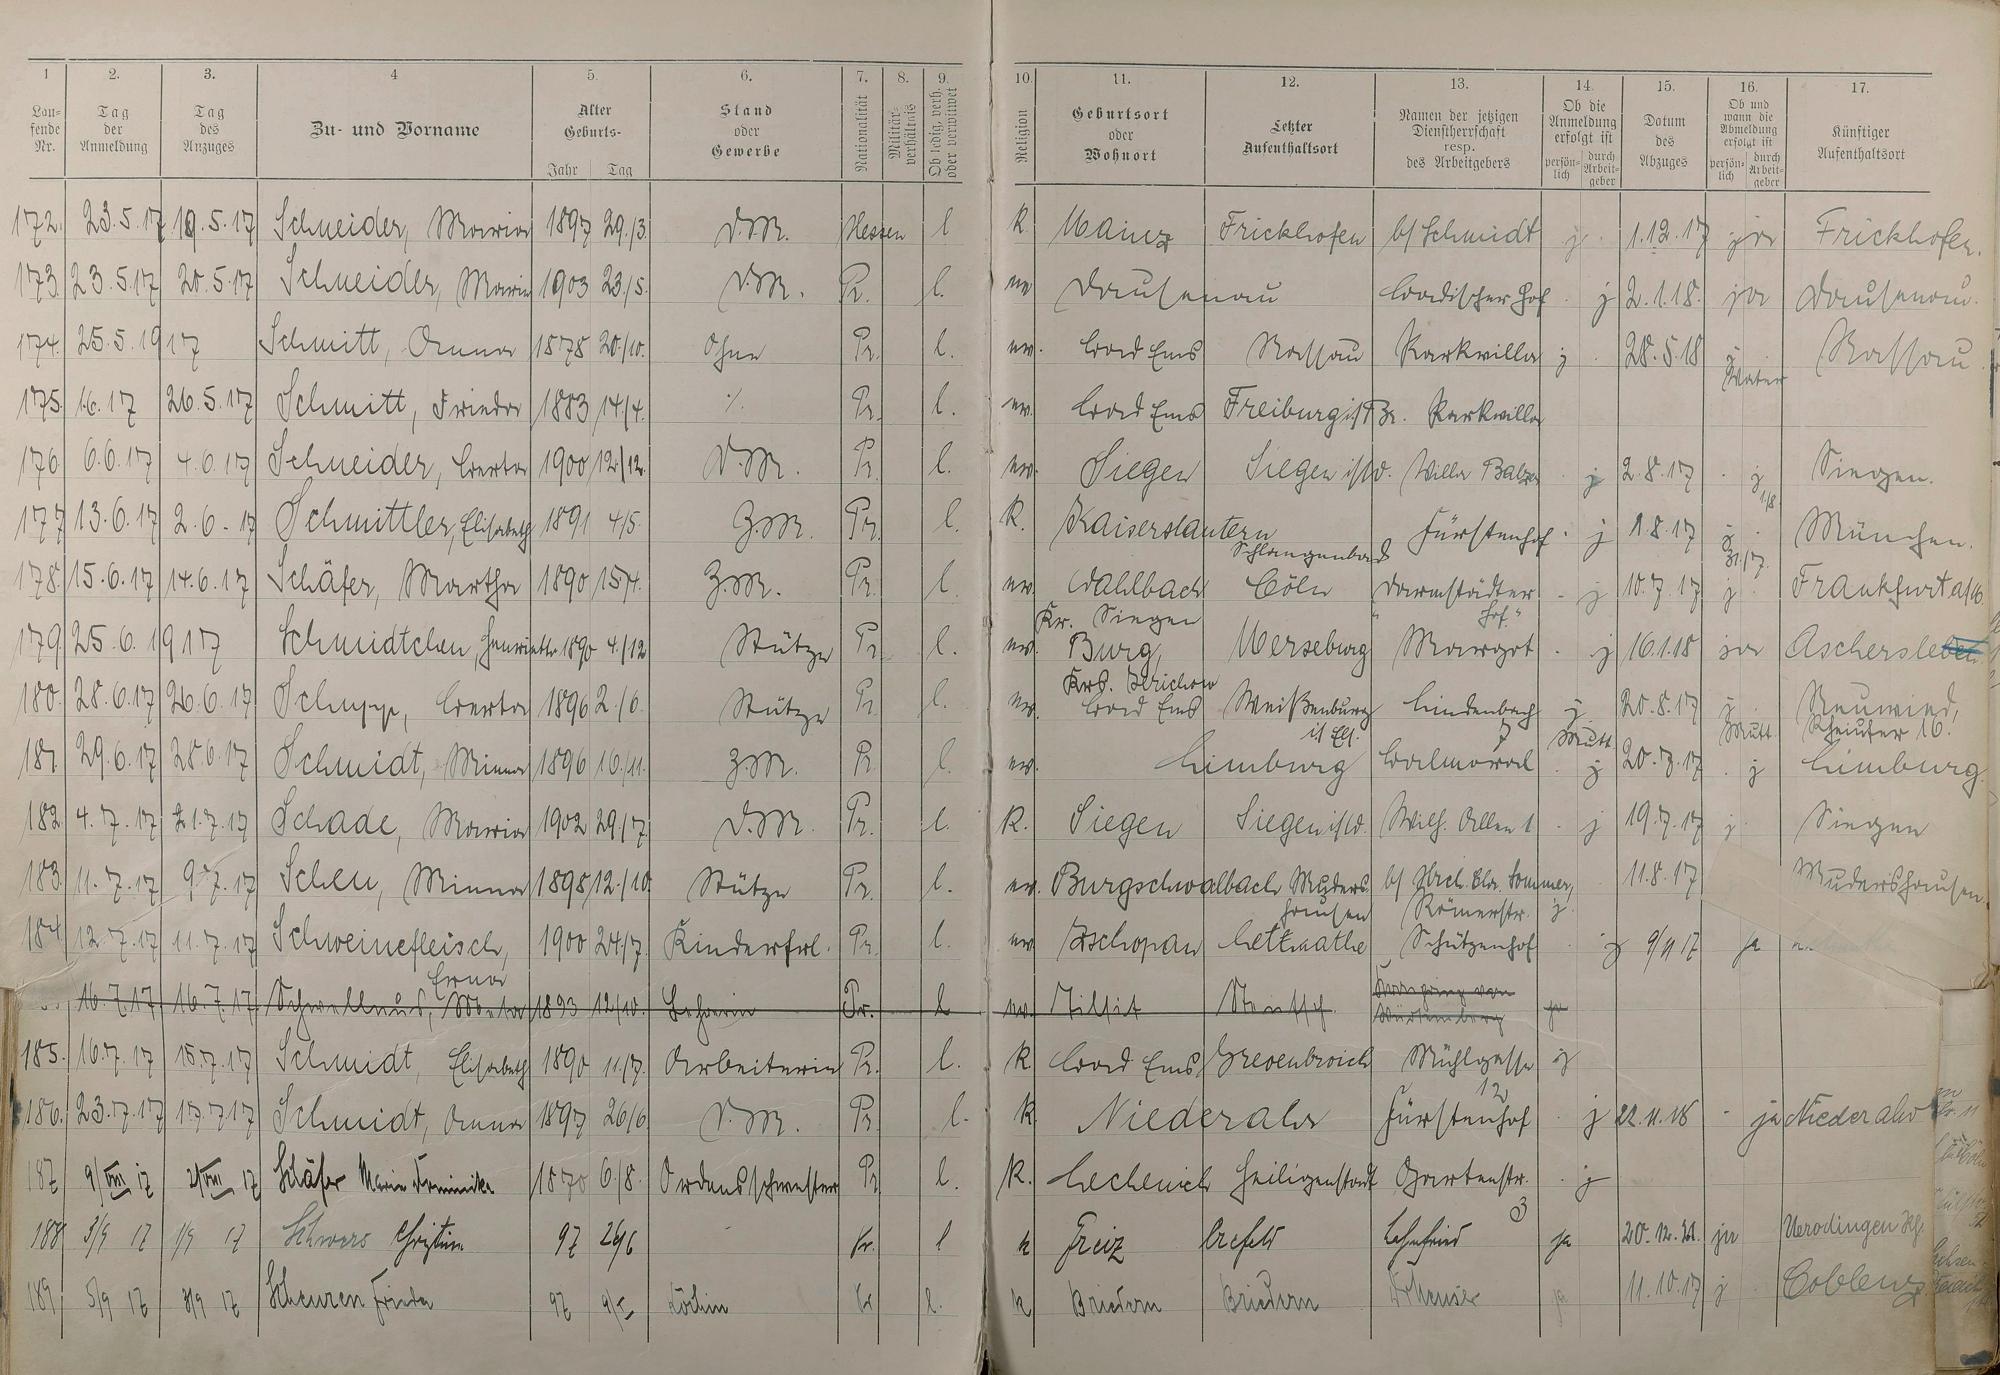 1 2. 3. 4 5. 6. 7. 8. 9. 10. 11. 12. 13. 14. 15. 16. 17.
Lau-fende Nr. Tag der Anmeldung Tag des Anzuges Zu- und Vorname Alter Geburts- Jahr Tag Stand oder Gewerbe Nationalität Militär-verhältnis Ob ledig, verh. oder verwitwet Religion Geburtsort oder Wohnort Letzter Aufenthaltsort Namen der jetzigen Dienstherrschaft resp. des Arbeitgebers Ob die Anmeldung erfolgt ist persön-lich durch Arbeit-geber Datum des Abzuges Ob und wann die Abmeldung erfolgt ist persön-lich durch Arbeit-geber Künftiger Aufenthaltsort
172. 23.5.17 19.5.17 Schneider, Maria 1897 29./3. D.M. Hessen l K. Mainz Frickhofen b/ Schmidt j. 1.12.17 ja Frickhofen.
173. 23.5.17 20.5.17 Schneider, Marie 1903 23/5. D.M. Pr. l. ev Dausenau Badischer Hof . j 2.1.18. ja Dausenau.
174. 25.5.1917 Schmitt, Anna 1878 20./10. Ohne Pr. l. ev. Bad Ems Nassau Parkvilla j . 28.5.18 j. Vater Nassau
175. 1.6.17 26.5.17 Schmitt, Frieda 1883 14/4. ·/. Pr. l. ev. Bad Ems Freiburg i/Br. Parkvilla
176. 6.6.17 4.6.17 Schneider, Berta 1900 12/12. D.M. Pr. l. ev. Siegen Siegen i/W. Villa Balzer . j 2.8.17 . j Siegen.
177 13.6.17 2.6.17 Schmittler, Elisabeth 1891 4/5. Z.M. Pr. l. K. Kaiserslautern Fürstenhof . j 1.8.17 j. 1/8 München.
178. 15.6.17 14.6.17 Schäfer, Martha 1890 15/4. Z.M. Pr. l. ev. Wahlbach Kr. Siegen Schlangenbad Cöln Darmstädter Hof" . j 10.7.17 j . Frankfurt a/M.
179. 25.6.1917 Schmidtchen, Henriette 1890 4./12 Stütze Pr. l. ev. Burg, Krs. Jerichow Merseburg Margot . j 16.1.18 ja Aschersleben
180. 28.6.17 26.6.17 Schupp, Berta 1896 2./6. Stütze Pr. l. ev. Bad Ems Weißenburg i/ Els. Lindenbach 7 j. Mutt. 20.8.17 j. Mutt. Neuwied, Rheinufer 16.
181. 29.6.17 28.6.17 Schmidt, Minna 1896 10/11. Z.M. Pr. l. ev. Limburg Balmoral . j 20.7.17 . j Limburg.
182. 4.7.17 1.7.17 Schade, Maria 1902 29/7. D.M. Pr. l. K. Siegen Siegen i/W. Wilh. . j 19.7.17 j. Siegen
183. 11.7.17 9.7.17 Scheu, Minna 1898 12./10. Stütze Pr. l. ev. Burgschwalbach Mudershausen b/ Sommer, Römerstr. j. 11.8.17 Mudershausen.
184. 12.7.17 11.7.17 Schweinefleisch, Erna 1900 24/7. Kinderfrl. Pr. l. ev. Zschopau Lettmathe Schützenhof . j 9/9 17 ja
16.7.17 16.7.17. Schwellnus, Meta 1893 12/10. Lehrerin Pr. l ev. Tilsit ja
185. 16.7.17 15.7.17 Schmidt, Elisabeth 1890 11/7. Arbeiterin Pr. l. K. Bad Ems Grevenbroich Mühlgasse 12 j
186. 23.7.17 17.7.17 Schmidt, Anna 1897 26/6. D.M. Pr. l. K. Niederahr Fürstenhof . j 22.11.18 - ja Niederahr
187 9/VIII 17 2/VIII 17 Schäfer Maria 1870 6/8. Ordensschwester Pr l. K. Lechenich Heiligenstadt Gartenstr. 3 . j
188 3/9 17 1/9 17 Schwers Christine 97 26/6 Pr. l k Greiz Crefeld Lahnfried ja ja Uerodingen
189 5/9 17 3/9 17 Scheuren Frieda 97 Köchin Pr l. k Briedern Briedern ja 11.10.17 j . Coblenz